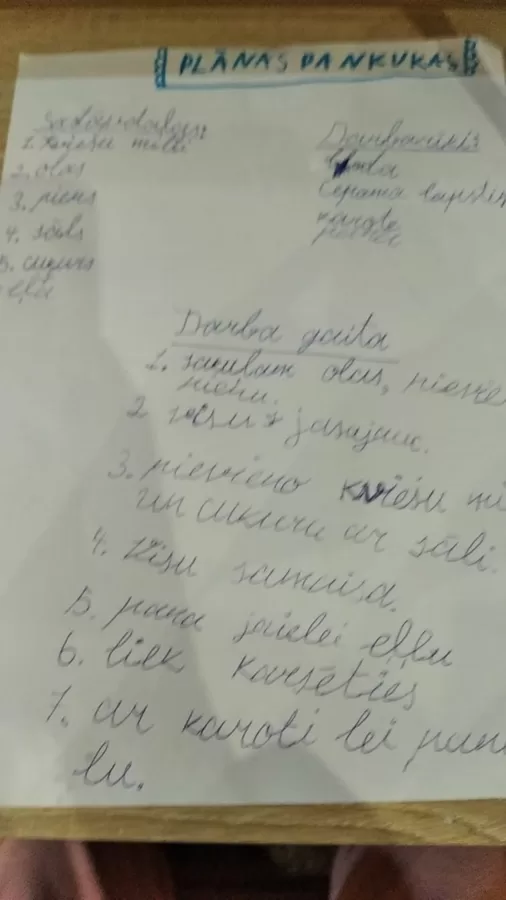 PLĀNAS PANKUKAS
Sastāvdaļas:
1. Kviešu milti
2. olas
3. piens
4. sāls
5. cukurs
eļļa
Darbarīki
Cepamā lāpsti
karote
Darba gaita
1. sakulam olas, pievie
pienu.
2 visu jasajauc.
3. pievieno kviešu mi
un cukuru ar sāli.
4. Visu samaisa.
5. pana jāielei eļļu
6. liek karsēties
7. ar karoti lei pan
ku.